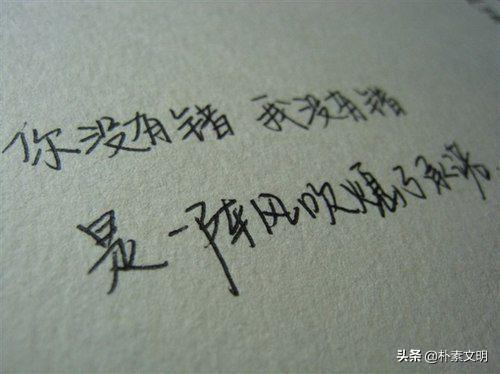 你没有错 我没有错
是一阵风吹熄了承诺.
头条 @朴素文明